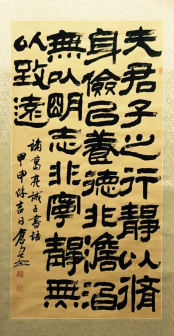 夫君子之行靜以脩
身儉以養德非澹泊
無以明志非寧靜無
以致遠
諸葛亮誡子書語
甲申年吉日